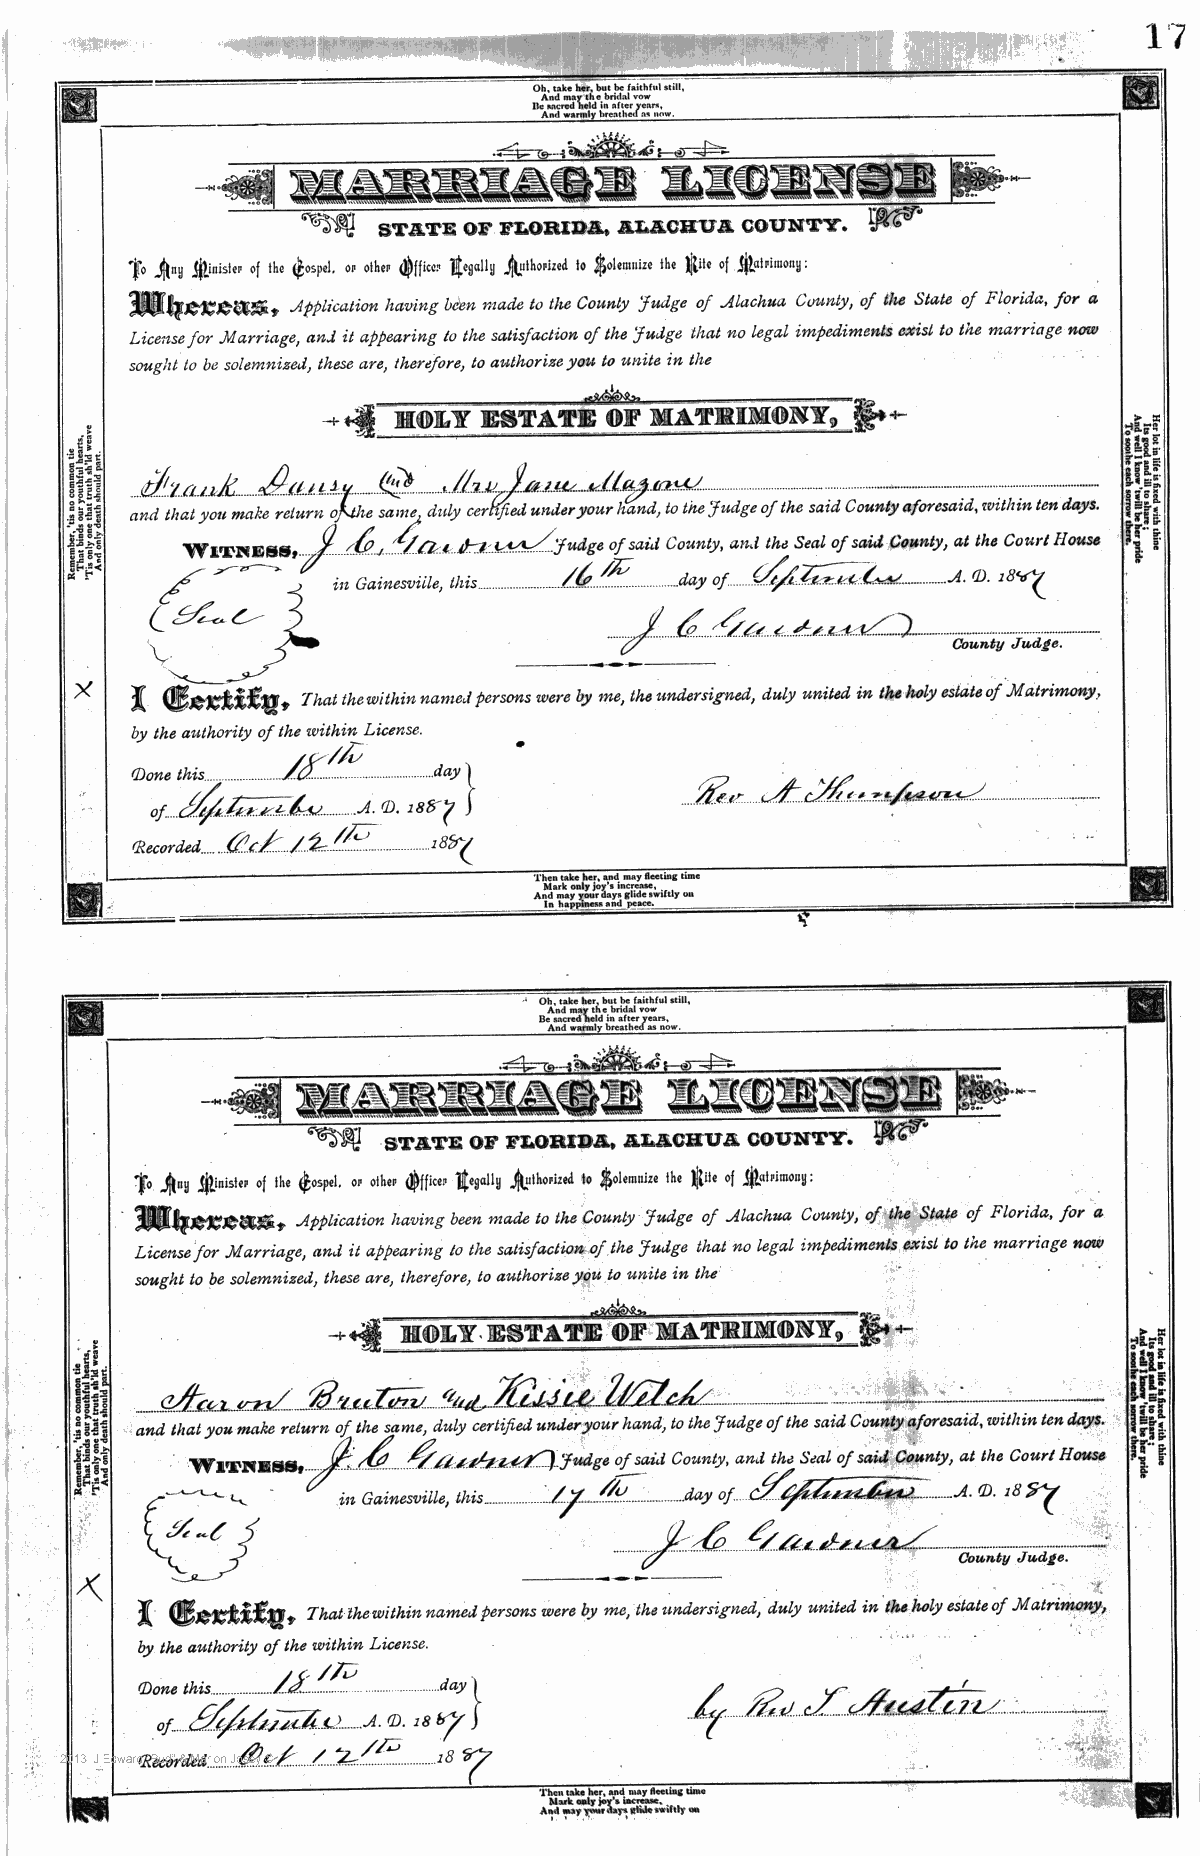 17
Oh, take her, but be faithful still,
And may the bridal vow
Be sacred held in after years,
And warmly breathed as now.
MARRIAGE LICENSE
STATE OF FLORIDA, ALACHUA COUNTY.
To Any Minister of the Gospel, or other Officer Legally Authorized to Solemnize the Rite of Matrimony:
Whereas, Application having been made to the County Judge of Alachua County, of the State of Florida, for a
License for Marriage, and it appearing to the satisfaction of the Judge that no legal impediments exist to the marriage now
sought to be solemnized, these are, therefore, to authorize you to unite in the
HOLY ESTATE OF MATRIMONY,
Frank Dansy and Mrs Jane Mazone
and that you make return of the same, duly certified under your hand, to the Judge of the said County aforesaid, within ten days.
WITNESS, J C, Gardner Judge of said County, and the Seal of said County, at the Court House
in Gainesville, this 16th day of September A. D. 1887
Seal
J C Gardner
County Judge.
X
I Certify, That the within named persons were by me, the undersigned, duly united in the holy estate of Matrimony,
by the authority of the within License.
Done this 18th day
of September A. D. 1887
Rev A Thompson
Recorded Oct 12th 1887
Remember, 'tis no common tie
That binds our youthful hearts,
'Tis only one that truth sh'ld weave
And only death should part.
Her lot in life is fixed with thine
Its good and ill to share;
And well I know 'twill be her pride
To soothe each sorrow there.
Then take her, and may fleeting time
Mark only joy's increase,
And may your days glide swiftly on
In happiness and peace.
Oh, take her, but be faithful still,
And may the bridal vow
Be sacred held in after years,
And warmly breathed as now.
MARRIAGE LICENSE
STATE OF FLORIDA, ALACHUA COUNTY.
To Any Minister of the Gospel, or other Officer Legally Authorized to Solemnize the Rite of Matrimony:
Whereas, Application having been made to the County Judge of Alachua County, of the State of Florida, for a
License for Marriage, and it appearing to the satisfaction of the Judge that no legal impediments exist to the marriage now
sought to be solemnized, these are, therefore, to authorize you to unite in the
HOLY ESTATE OF MATRIMONY,
Aaron Bruton and Kissie Welch
and that you make return of the same, duly certified under your hand, to the Judge of the said County aforesaid, within ten days.
WITNESS, J. C Gardner Judge of said County, and the Seal of said County, at the Court House
in Gainesville, this 17th day of September A. D. 1887
Seal
J C Gardner
County Judge.
X
I Certify, That the within named persons were by me, the undersigned, duly united in the holy estate of Matrimony,
by the authority of the within License.
Done this 18th day
of September A. D. 1887
by Rev T Austin
Recorded Oct 12th 1887
Remember, 'tis no common tie
That binds our youthful hearts,
'Tis only one that truth sh'ld weave
And only death should part.
Her lot in life is fixed with thine
Its good and ill to share;
And well I know 'twill be her pride
To soothe each sorrow there.
Then take her, and may fleeting time
Mark only joy's increase,
And may your days glide swiftly on